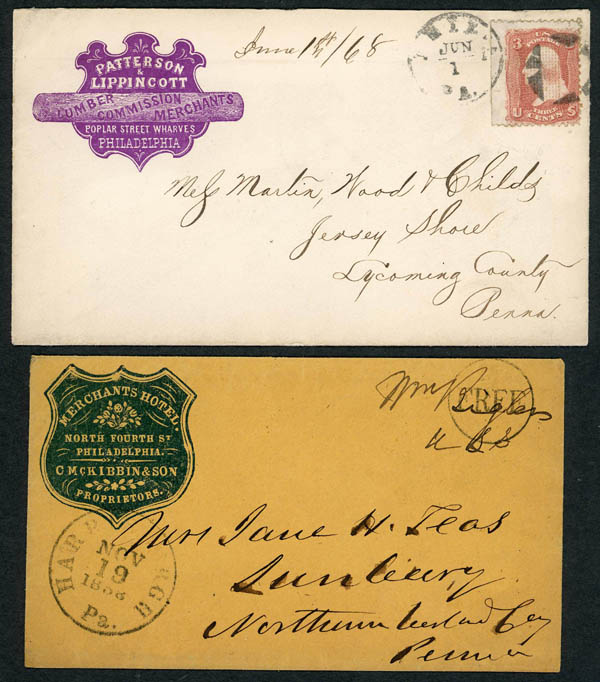 PATTERSON
&
LIPPINCOTT
LUMBER COMMISSION MERCHANTS
POPLAR STREET WHARVES
PHILADELPHIA
June 1st/68
JUN
1
PA.
3 U.S. POSTAGE 3
THREE
U CENTS S
Mess Martin, Wood & Childs
Jersey Shore
Lycoming County
Penna.
MERCHANTS HOTEL.
NORTH FOURTH ST
PHILADELPHIA.
C McKIBBIN & SON
PROPRIETORS.
Wm
FREE
U S S
HAR
NOV
19
Pa.
Mrs Jane H. Teas
Sunbury
Northumberland Coy
Penna